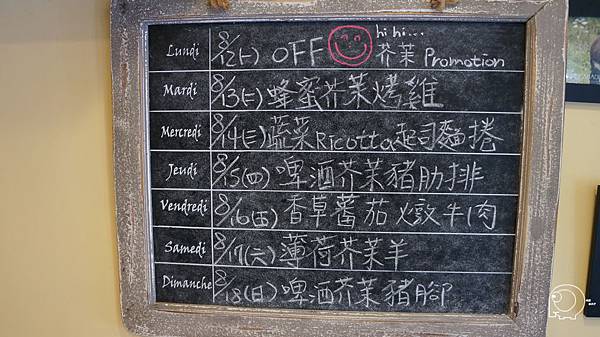 hi hi...
Lundi 8/12(一) OFF 芥茉 Promotion
Mardi 8/13(二) 蜂蜜芥茉烤雞
Mercredi 8/14(三) 蔬菜Ricotta起司麵捲
Jeudi 8/15(四) 啤酒芥茉豬肋排
Vendredi 8/16(五) 香草蕃茄燉牛肉
Samedi 8/17(六) 薄荷芥茉羊
Dimanche 8/18(日) 啤酒芥茉豬腳